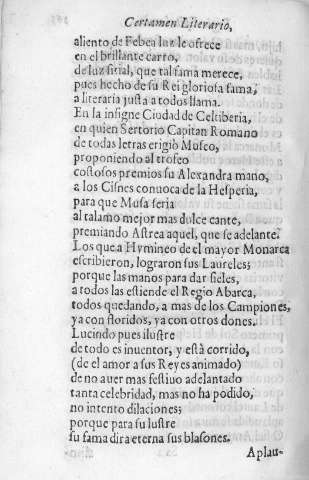 Certamen Literario,
aliento de Febea luz le ofrece
en el brillante carro,
de luz sirial, que tal fama merece,
pues hecho de su Rei gloriosa fama,
a literaria justa a todos llama.
En la insigne Ciudad de Celtiberia,
en quien Sertorio Capitan Romano
de todas letras erigiò Museo,
proponiendo al trofeo
costosos premios su Alexandra mano,
a los Cisnes conuoca de la Hesperia,
para que Musa seria
al talamo mejor mas dulce cante,
premiando Astrea aquel, que se adelante.
Los que a Hymineo de el mayor Monarca
escribieron, lograron sus Laureles;
porque las manos para dar fieles,
a todos las estiende el Regio Abarca,
todos quedando, a mas de los Campiones,
ya con floridos, ya con otros dones.
Lucindo pues ilustre
de todo es inuentor, y està corrido,
(de el amor a sus Reyes animado)
de no auer mas festiuo adelantado
tanta celebridad, mas no ha podido,
no intento dilaciones;
porque para su lustre
su fama dira eterna sus blasones.
Aplau-